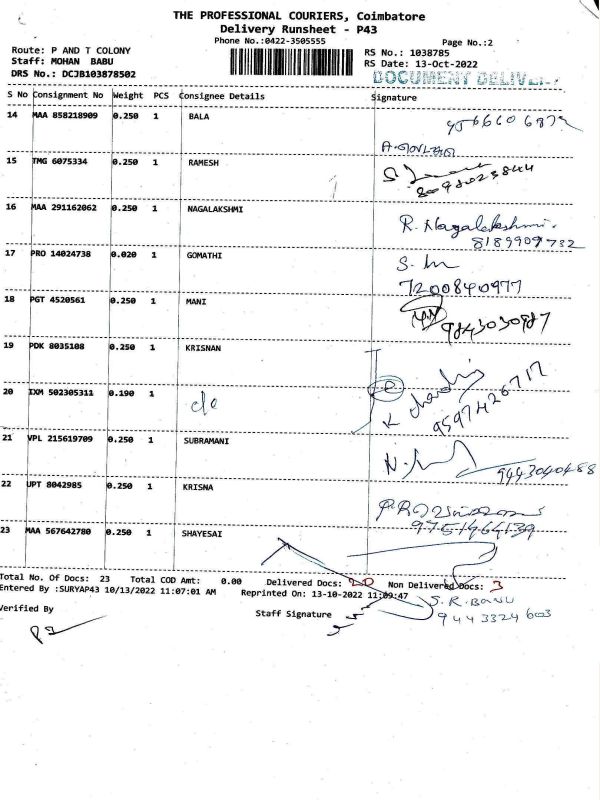 THE PROFESSIONAL COURIERS, Coimbatore
Delivery Runsheet - P43
Phone No.:0422-3505555
Page No.:2
Route: P AND T COLONY
RS No.: 1038785
Staff: MOHAN BABU
RS Date: 13-Oct-2022
DRS No.: DCJB103878502
DOCUMENT DELIV
S No Consignment No Weight PCS Consignee Details Signature
14 MAA 858218909 0.250 1 BALA
15 TMG 6075334 0.250 1 RAMESH
8098023844
16 MAA 291162062 0.250 1 NAGALAKSHMI
R. Nagalakshmi.
8189909732
17 PRO 14024738 0.020 1 GOMATHI
7200840977
18 PGT 4520561 0.250 1 MANI
9843030987
19 PDK 8035108 0.250 1 KRISNAN
20 IXM 502305311 0.190 1 c/o
9597426717
21 VPL 215619709 0.250 1 SUBRAMANI
9443040488
22 UPT 8042985 0.250 1 KRISNA
9751464139
23 MAA 567642780 0.250 1 SHAYESAI
Total No. Of Docs: 23 Total COD Amt: 0.00 Delivered Docs: 20 Non Delivered Docs: 3
Entered By :SURYAP43 10/13/2022 11:07:01 AM Reprinted On: 13-10-2022 11:09:47
S.R.BANU
Verified By Staff Signature 9443324603